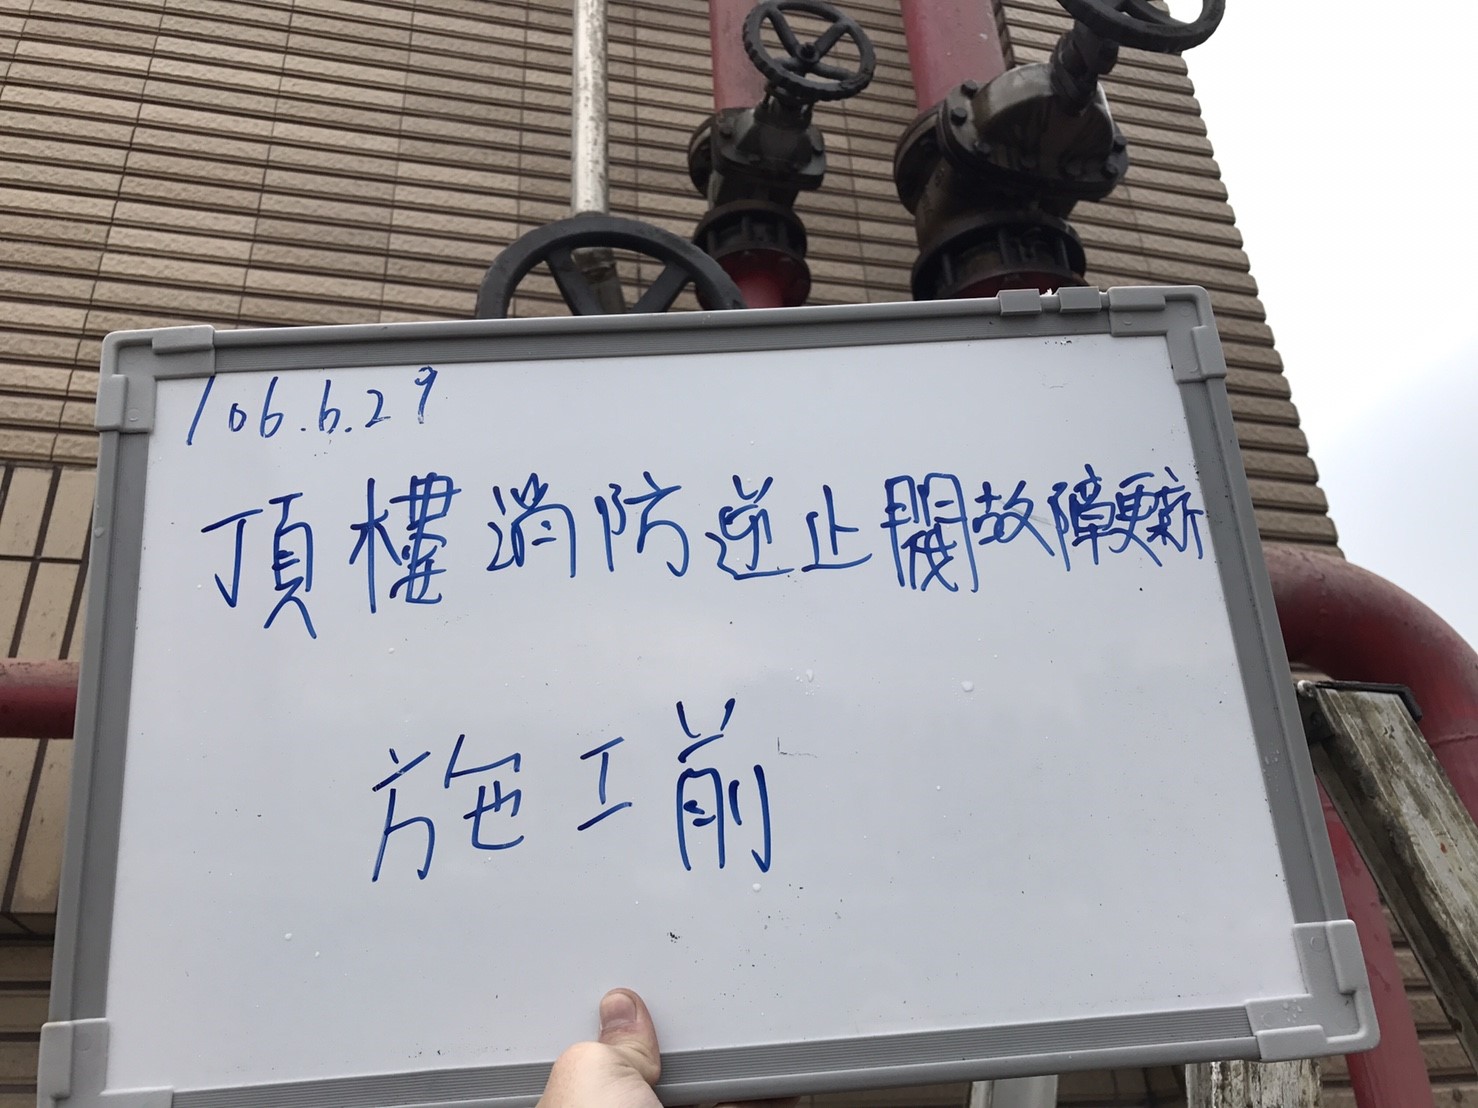 106.6.29
頂樓消防逆止閥故障更新
施工前